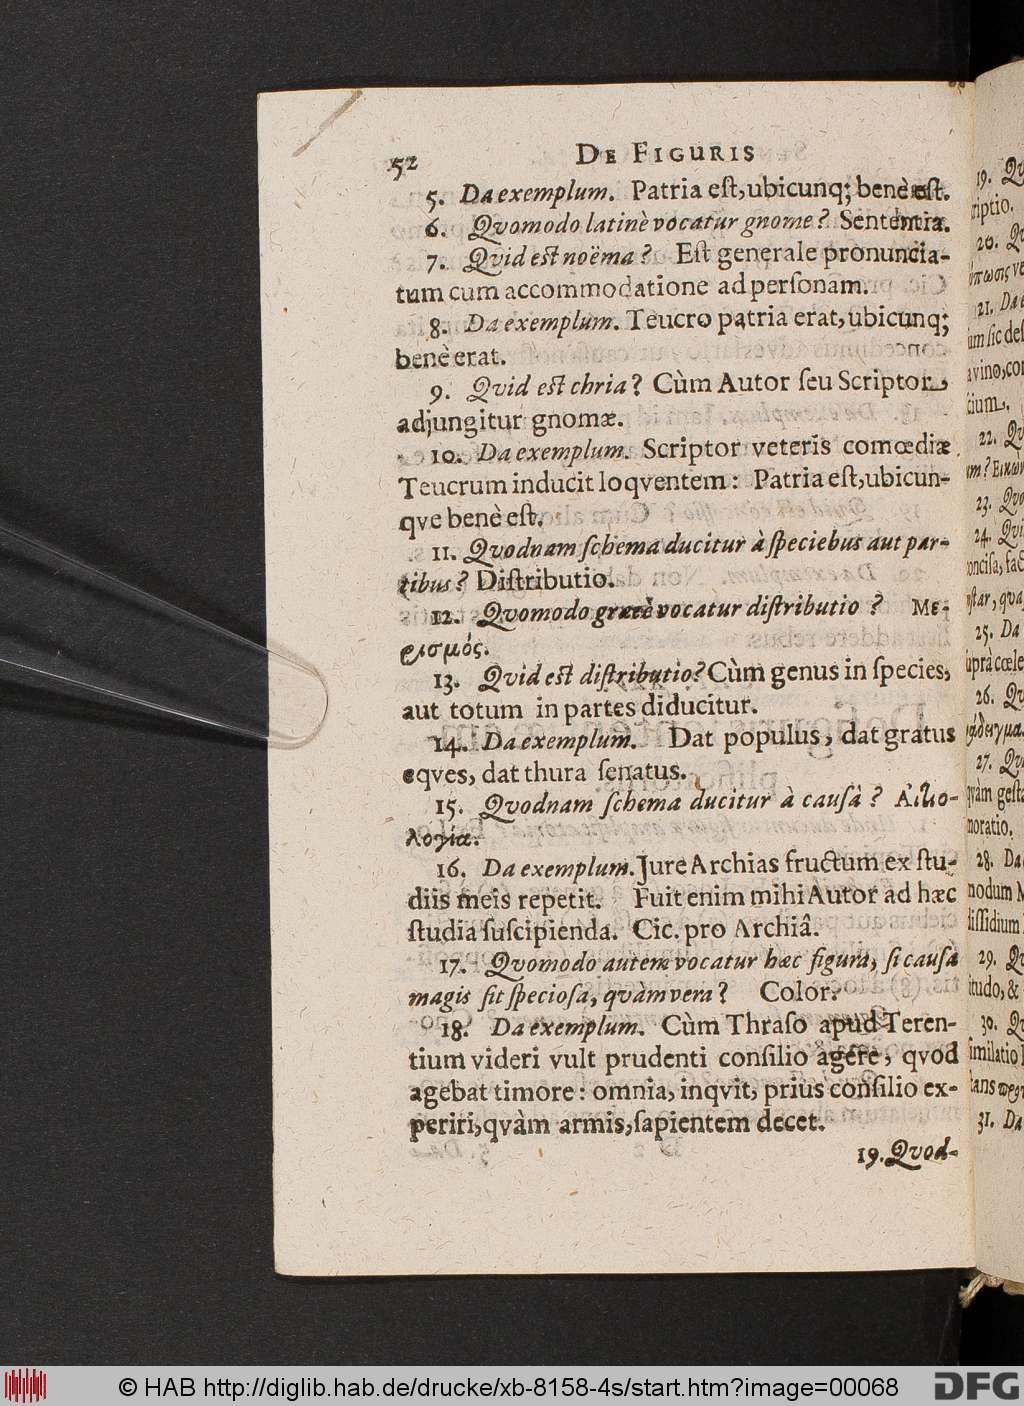 52 DE FIGURIS
5. Da exemplum. Patria eſt, ubicunq; benè eſt.
6. Qvomodo latinè vocatur gnome? Sententia.
7. Qvid est noëma? Eſt generale pronuncia-
tum cum accommodatione ad perſonam.
8. Da exemplum. Teucro patria erat, ubicunq;
benè erat.
9. Qvid est chria? Cùm Autor ſeu Scriptor,
adjungitur gnomæ.
10. Da exemplum. Scriptor veteris comœdiæ
Teucrum inducit loqventem: Patria eſt, ubicun-
qve benè eſt.
11. Qvodnam ſchema ducitur à ſpeciebus aut par-
tibus? Diſtributio.
12. Qvomodo græcè vocatur diſtributio? Με-
ρισμός.
13. Qvid est diſtributio? Cùm genus in ſpecies,
aut totum in partes diducitur.
14. Da exemplum. Dat populus, dat gratus
eqves, dat thura ſenatus.
15. Qvodnam ſchema ducitur à causâ? Αἰτιο-
λογία.
16. Da exemplum. Jure Archias fructum ex ſtu-
diis meis repetit. Fuit enim mihi Autor ad hæc
ſtudia ſuſcipienda. Cic. pro Archiâ.
17. Qvomodo autem vocatur hæc figura, ſi cauſa
magis ſit ſpecioſa, qvàm vera? Color.
18. Da exemplum. Cùm Thraſo apud Teren-
tium videri vult prudenti conſilio agere, qvod
agebat timore: omnia, inqvit, prius conſilio ex-
periri, qvàm armis, ſapientem decet.
19. Qvod-
19. Qv
riptio.
20. Qv
21. Da
um ſic deſ
avino, co
cium.
22. Qv
23. Qvo
24. Qvi
conciſa, fac
25. Da
ſupra cœle
26. Qv
27. Qvo
qvàm geſta
moratio.
28. Da
modum M
diſſidium
29. Qv
itudo, &
30. Qv
ſimilatio
31. Da
© HAB http://diglib.hab.de/drucke/xb-8158-4s/start.htm?image=00068
DFG